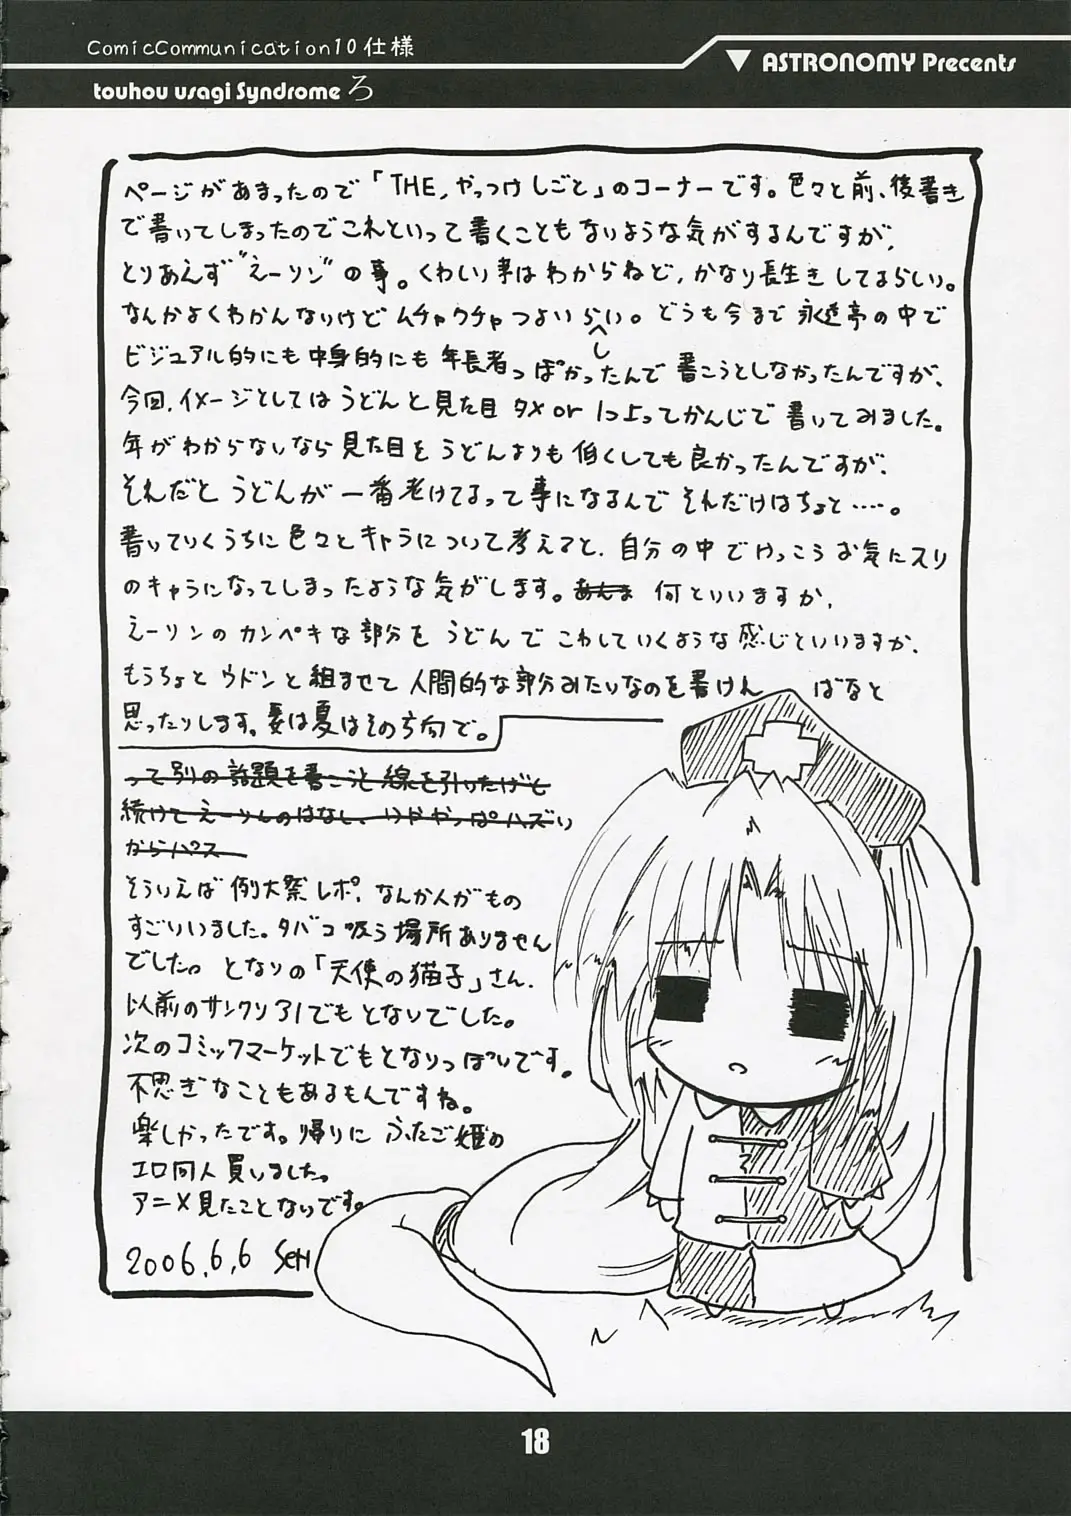 ComicCommunication10仕様
▼ ASTRONOMY Precents
touhou usagi Syndrome ろ
ページがあまったので「THE, やっつけしごと」のコーナーです。色々と前、後書き
で書いてしまったのでこれといって書くこともないような気がするんですが、
とりあえず"えーリン"の事。くわしい事はわからねど、かなり長生きしてるらしい。
なんかよくわかんないけどムチャクチャつよいらしい。どうも今まで永遠亭の中で
ビジュアル的にも中身的にも年長者っぽかったんで書こうとしなかったんですが、
今回、イメージとしてはうどんと見た目タメor1つ上ってかんじで書いてみました。
年がわからないなら見た目をうどんよりも低くしても良かったんですが、
それだとうどんが一番老けてるって事になるんでそれだけはちょと……。
書いていくうちに色々とキャラについて考えてると、自分の中でけっこうお気に入り
のキャラになってしまったような気がします。 何といいますか、
えーリンのカンペキな部分をうどんでこわしていくような感じといいますか、
もうちょとウドンと組ませて人間的な部分みたいなのを書けんばなと
思ったりします。夏はその方向で。
って別の話題を書こうと線を引いたけど
続けてえーりんのはなし、 やっぱハズい
からパス
そういえば例大祭レポ、なんか人がもの
すごいいました。タバコ吸う場所ありません
でした。となりの「天使の猫子」さん、
以前のサンクリ31でもとなりでした。
次のコミックマーケットでもとなりっぽいです。
不思ぎなこともあるもんですね。
楽しかったです。帰りにふたご姫の
エロ同人買いました。
アニメ見たことないです。
2006.6.6 SEN
18